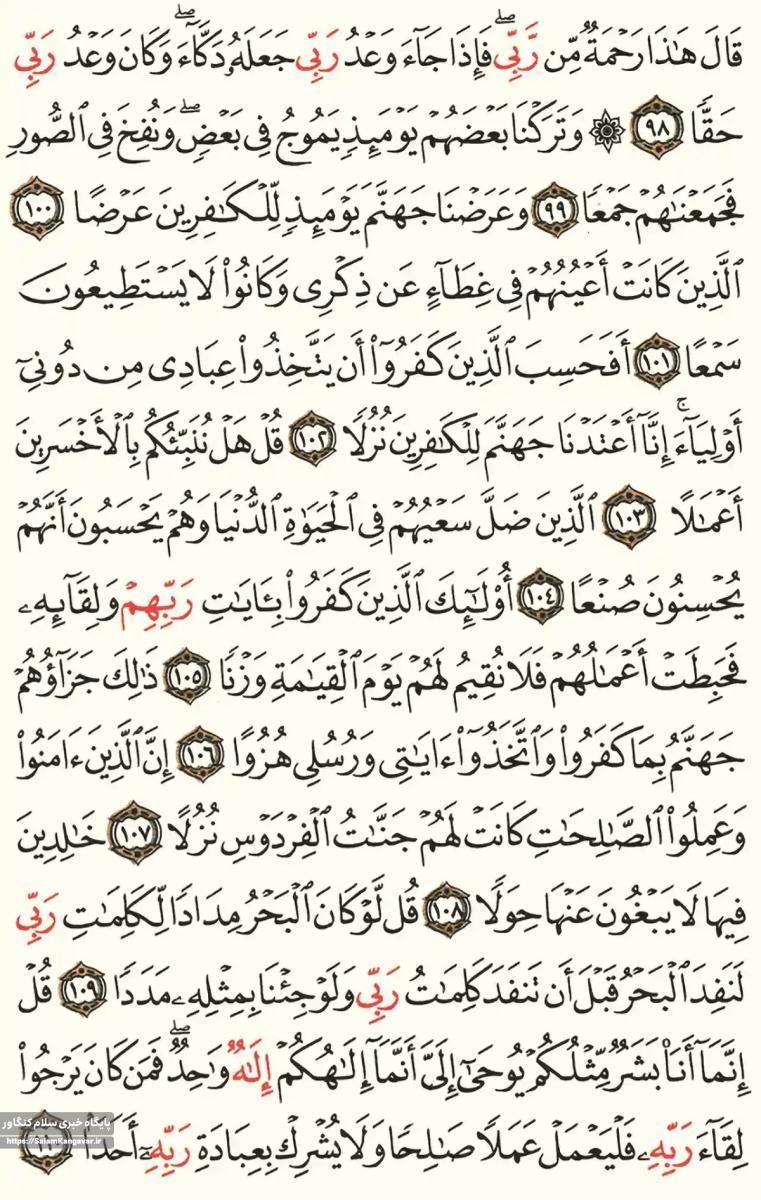 قَالَ هَٰذَا رَحْمَةٌ مِّن رَّبِّي ۖ فَإِذَا جَآءَ وَعْدُ رَبِّي جَعَلَهُۥ دَكَّآءَ ۖ وَكَانَ وَعْدُ رَبِّي
حَقًّا ٩٨ ۞ وَتَرَكْنَا بَعْضَهُمْ يَوْمَئِذٍ يَمُوجُ فِي بَعْضٍ ۖ وَنُفِخَ فِي ٱلصُّورِ
فَجَمَعْنَٰهُمْ جَمْعًا ٩٩ وَعَرَضْنَا جَهَنَّمَ يَوْمَئِذٍ لِّلْكَٰفِرِينَ عَرْضًا ١٠٠
ٱلَّذِينَ كَانَتْ أَعْيُنُهُمْ فِي غِطَآءٍ عَن ذِكْرِي وَكَانُوا۟ لَا يَسْتَطِيعُونَ
سَمْعًا ١٠١ أَفَحَسِبَ ٱلَّذِينَ كَفَرُوٓا۟ أَن يَتَّخِذُوا۟ عِبَادِي مِن دُونِيٓ
أَوْلِيَآءَ ۚ إِنَّآ أَعْتَدْنَا جَهَنَّمَ لِلْكَٰفِرِينَ نُزُلًا ١٠٢ قُلْ هَلْ نُنَبِّئُكُم بِٱلْأَخْسَرِينَ
أَعْمَٰلًا ١٠٣ ٱلَّذِينَ ضَلَّ سَعْيُهُمْ فِي ٱلْحَيَوٰةِ ٱلدُّنْيَا وَهُمْ يَحْسَبُونَ أَنَّهُمْ
يُحْسِنُونَ صُنْعًا ١٠٤ أُو۟لَٰٓئِكَ ٱلَّذِينَ كَفَرُوا۟ بِـَٔايَٰتِ رَبِّهِمْ وَلِقَآئِهِۦ
فَحَبِطَتْ أَعْمَٰلُهُمْ فَلَا نُقِيمُ لَهُمْ يَوْمَ ٱلْقِيَٰمَةِ وَزْنًا ١٠٥ ذَٰلِكَ جَزَآؤُهُمْ
جَهَنَّمُ بِمَا كَفَرُوا۟ وَٱتَّخَذُوٓا۟ ءَايَٰتِي وَرُسُلِي هُزُوًا ١٠٦ إِنَّ ٱلَّذِينَ ءَامَنُوا۟
وَعَمِلُوا۟ ٱلصَّٰلِحَٰتِ كَانَتْ لَهُمْ جَنَّٰتُ ٱلْفِرْدَوْسِ نُزُلًا ١٠٧ خَٰلِدِينَ
فِيهَا لَا يَبْغُونَ عَنْهَا حِوَلًا ١٠٨ قُل لَّوْ كَانَ ٱلْبَحْرُ مِدَادًا لِّكَلِمَٰتِ رَبِّي
لَنَفِدَ ٱلْبَحْرُ قَبْلَ أَن تَنفَدَ كَلِمَٰتُ رَبِّي وَلَوْ جِئْنَا بِمِثْلِهِۦ مَدَدًا ١٠٩ قُلْ
إِنَّمَآ أَنَا۠ بَشَرٌ مِّثْلُكُمْ يُوحَىٰٓ إِلَيَّ أَنَّمَآ إِلَٰهُكُمْ إِلَٰهٌ وَٰحِدٌ ۖ فَمَن كَانَ يَرْجُوا۟
لِقَآءَ رَبِّهِۦ فَلْيَعْمَلْ عَمَلًا صَٰلِحًا وَلَا يُشْرِكْ بِعِبَادَةِ رَبِّهِۦٓ أَحَدًۢا ١١٠
پایگاه خبری سلام کنگاور
https://SalamKangavar.ir